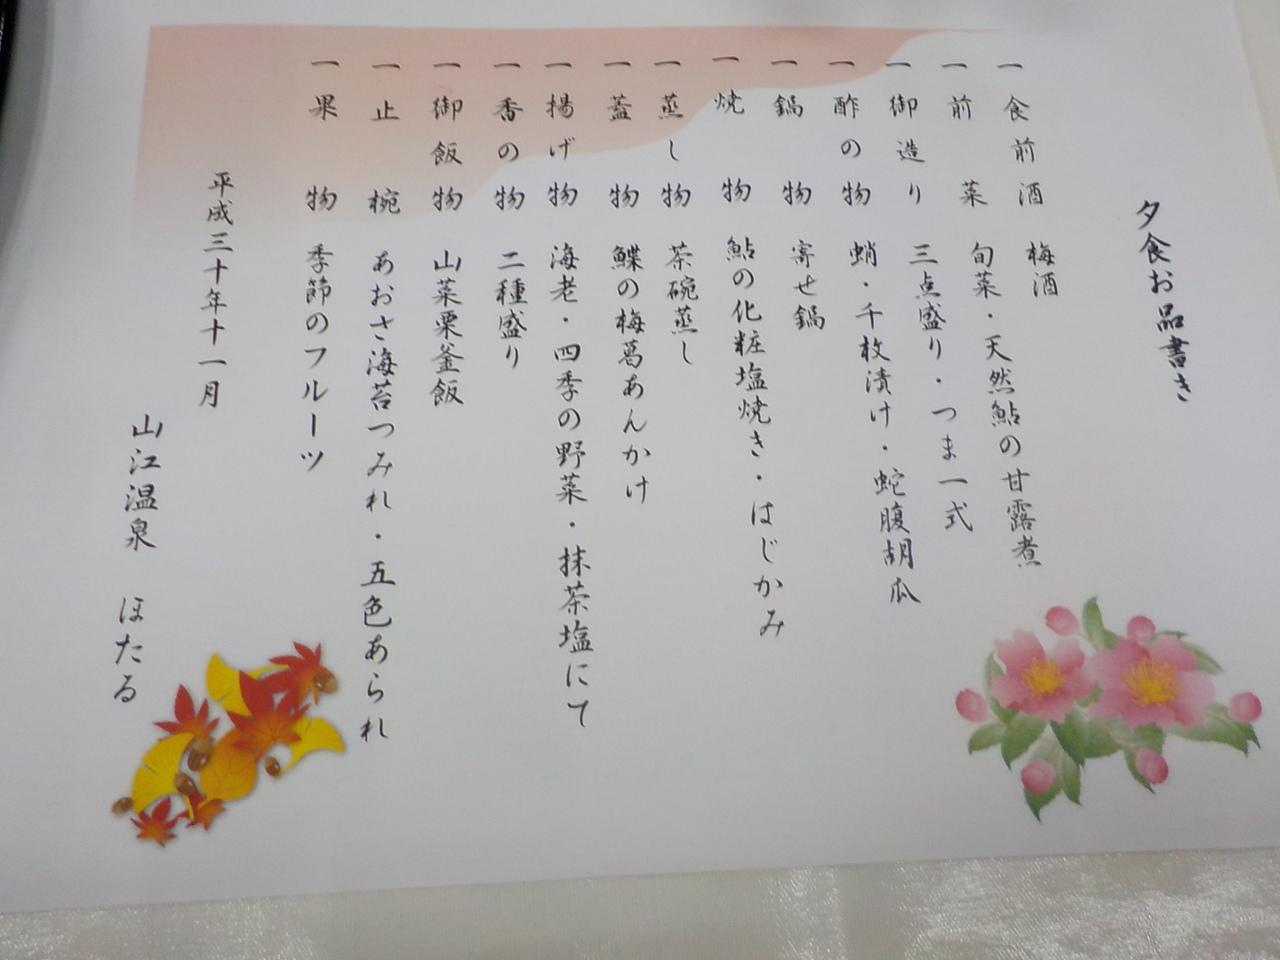 夕食お品書き
一 食前酒 梅酒
一 前菜 旬菜・天然鮎の甘露煮
一 御造り 三点盛り・つま一式
一 酢の物 蛸・千枚漬け・蛇腹胡瓜
一 鍋物 寄せ鍋
一 焼物 鮎の化粧塩焼き・はじかみ
一 蒸し物 茶碗蒸し
一 蓋物 鰈の梅葛あんかけ
一 揚げ物 海老・四季の野菜・抹茶塩にて
一 香の物 二種盛り
一 御飯物 山菜栗釜飯
一 止椀 あおさ海苔つみれ・五色あられ
一 果物 季節のフルーツ
平成三十年十一月
山江温泉 ほたる